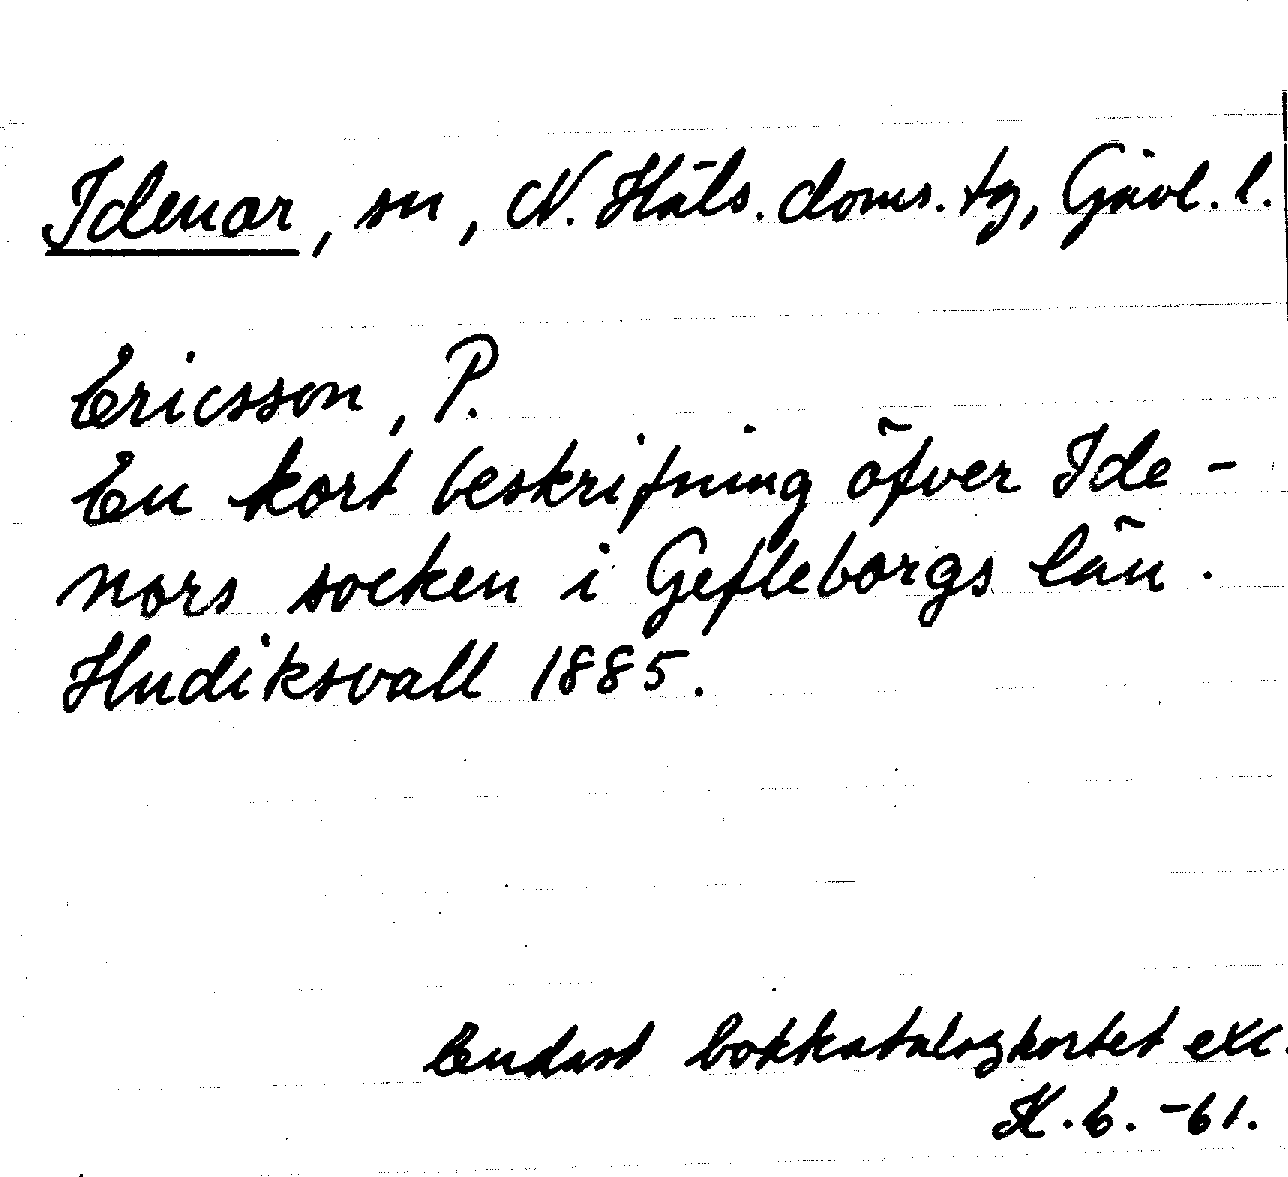 Idenor, sn, N. Häls. doms. tg, Gävl. l.
Ericsson, P.
En kort beskrifning öfver Ide-
nors socken i Gefleborgs län.
Hudiksvall 1885.
Endast bokkatalogkortet exc.
K. E. -61.